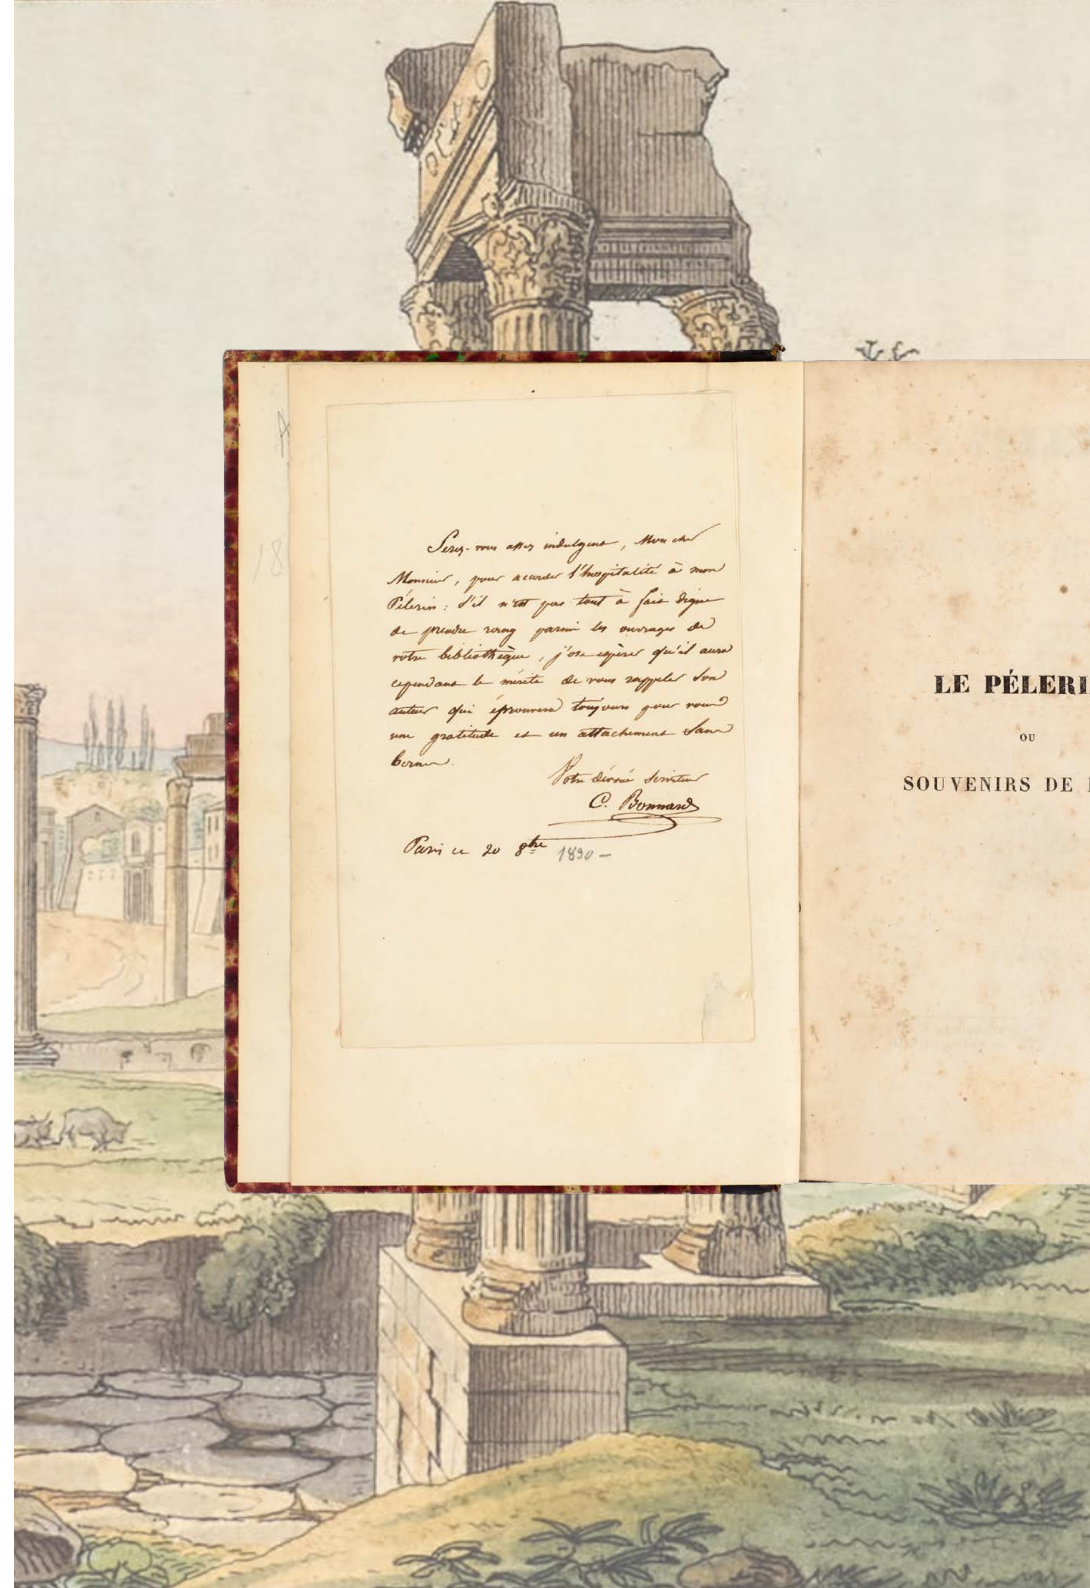 Serez-vous assez indulgent, Mon cher
Monsieur, pour accorder l'hospitalité à mon
Pélerin : s'il n'est pas tout à fait digne
de prendre rang parmi les ouvrages de
votre bibliothèque, j'ose espérer qu'il aura
cependant le mérite de vous rappeler son
auteur qui éprouvera toujours pour vous
une gratitude et un attachement sans
bornes.
Votre dévoué serviteur
C. Bonnard
Paris ce 20 8bre 1830 –
LE PÉLERI
OU
SOUVENIRS DE